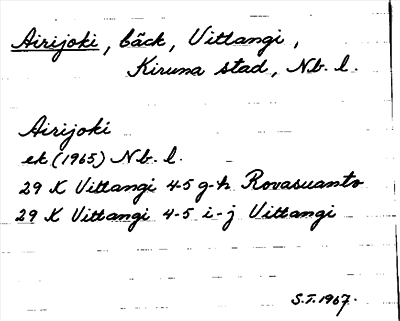 Airijoki, bäck, Vittangi,
Kiruna stad, Nb. l.
Airijoki
ek (1965) Nb. l.
29 K Vittangi 4-5 g-h Rovasuanto
29 K Vittangi 4-5 i-j Vittangi
S.T. 1967.